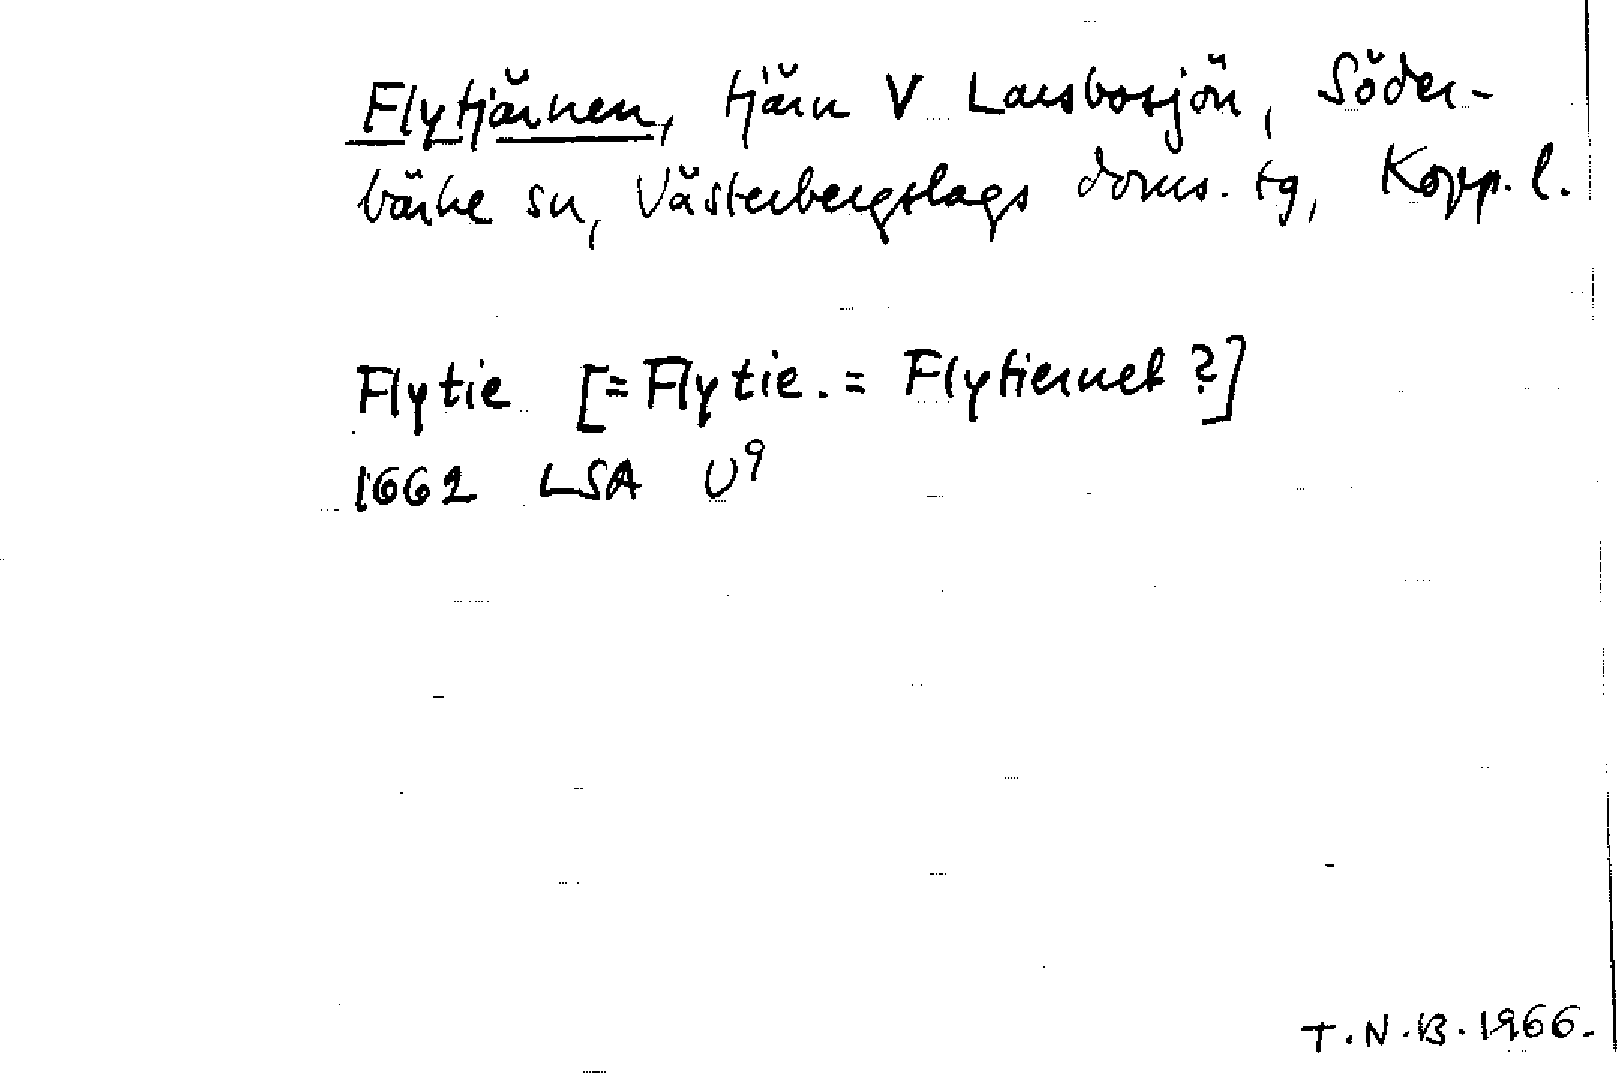 Flytjärnen, tjärn V Larsbosjön, Söder-
bärke sn, Västerbergslags doms. tg, Kopp. l.
Flytie [= Flytie. = Flytiernet ?]
1662 LSA U⁹
T.N.B. 1966.